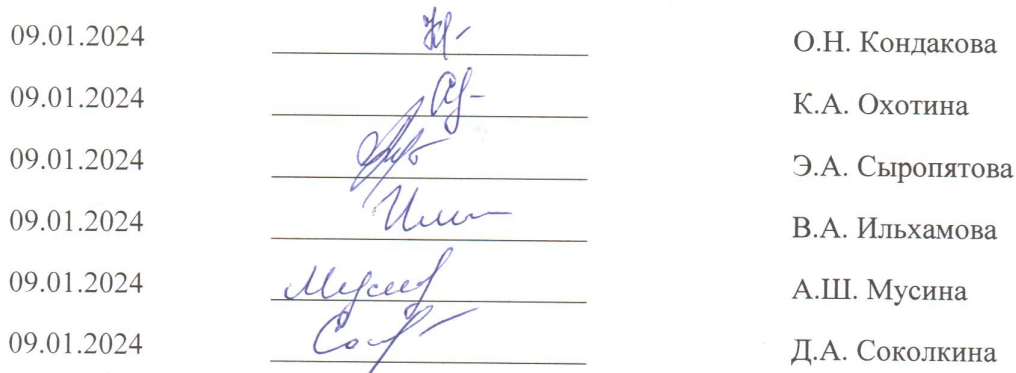 09.01.2024 О.Н. Кондакова
09.01.2024 К.А. Охотина
09.01.2024 Э.А. Сыропятова
09.01.2024 В.А. Ильхамова
09.01.2024 А.Ш. Мусина
09.01.2024 Д.А. Соколкина